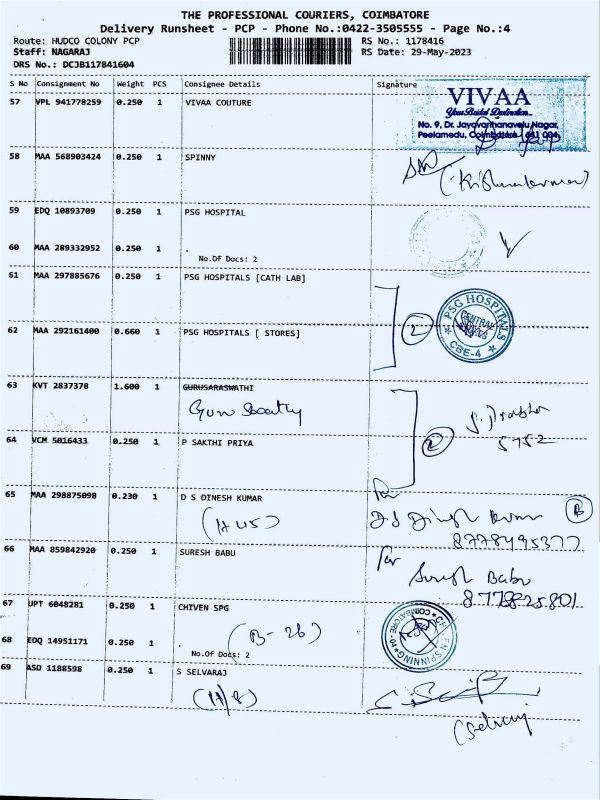 THE PROFESSIONAL COURIERS, COIMBATORE
Delivery Runsheet - PCP - Phone No.:0422-3505555 - Page No.:4
Route: HUDCO COLONY PCP RS No.: 1178416
Staff: NAGARAJ RS Date: 29-May-2023
DRS No.: DCJB117841604
S No Consignment No Weight PCS Consignee Details Signature
57 VPL 941778259 0.250 1 VIVAA COUTURE
VIVAA
Your Bridal Destination..
No. 9, Dr. Jayavarthanavelu Nagar,
Peelamedu, Coimbatore - 641 004
58 MAA 568903424 0.250 1 SPINNY
59 EDQ 10893709 0.250 1 PSG HOSPITAL
60 MAA 289332952 0.250 1 .
No.OF Docs: 2
61 MAA 297885676 0.250 1 PSG HOSPITALS [CATH LAB]
2 PSG HOSPITALS
CENTRAL
CBE-4
62 MAA 292161400 0.660 1 PSG HOSPITALS [ STORES]
63 KVT 2837378 1.600 1 GURUSARASWATHI
5752
64 VCM 5016433 0.250 1 P SAKTHI PRIYA
65 MAA 298875098 0.230 1 D S DINESH KUMAR
(H 45)
For
8778495377
66 MAA 859842920 0.250 1 SURESH BABU
For
Suresh Babu
8778825801
67 UPT 6048281 0.250 1 CHIVEN SPG
(B-26)
68 EDQ 14951171 0.250 1 .
No.OF Docs: 2
69 ASD 1188598 0.250 1 S SELVARAJ
(H/8)